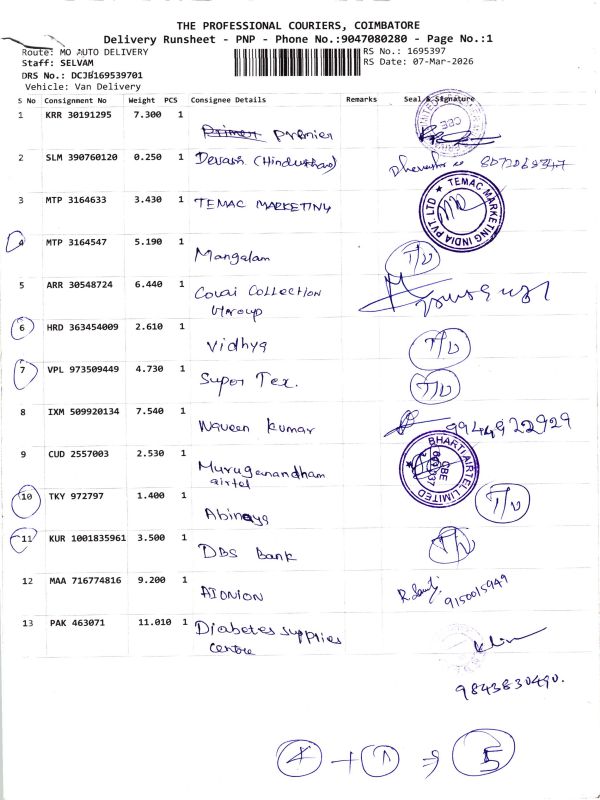 THE PROFESSIONAL COURIERS, COIMBATORE
Delivery Runsheet - PNP - Phone No.:9047080280 - Page No.:1
Route: MO AUTO DELIVERY RS No.: 1695397
Staff: SELVAM RS Date: 07-Mar-2026
DRS No.: DCJB169539701
Vehicle: Van Delivery
S No Consignment No Weight PCS Consignee Details Remarks Seal & Signature
1 KRR 30191295 7.300 1
Primer Premier CBE
2 SLM 390760120 0.250 1 Devash (Hindusthan)
3 MTP 3164633 3.430 1 TEMAC MARKETING TEMAC MARKETING INDIA PVT LTD
4 MTP 3164547 5.190 1
Mangalam T/U
5 ARR 30548724 6.440 1 Covai Collection
Group
6 HRD 363454009 2.610 1
Vidhya T/U
7 VPL 973509449 4.730 1
Super Tex. T/U
8 IXM 509920134 7.540 1
Naveen kumar 9944922929
9 CUD 2557003 2.530 1
Muruganandham BHARTI AIRTEL LIMITED CBE
airtel
10 TKY 972797 1.400 1
Abinaya T/U
11 KUR 1001835961 3.500 1
DBS Bank T/U
12 MAA 716774816 9.200 1
AIONION 9150015949
13 PAK 463071 11.010 1 Diabetes supplies
centre
9843830490.
4 + 1 ⇒ 5